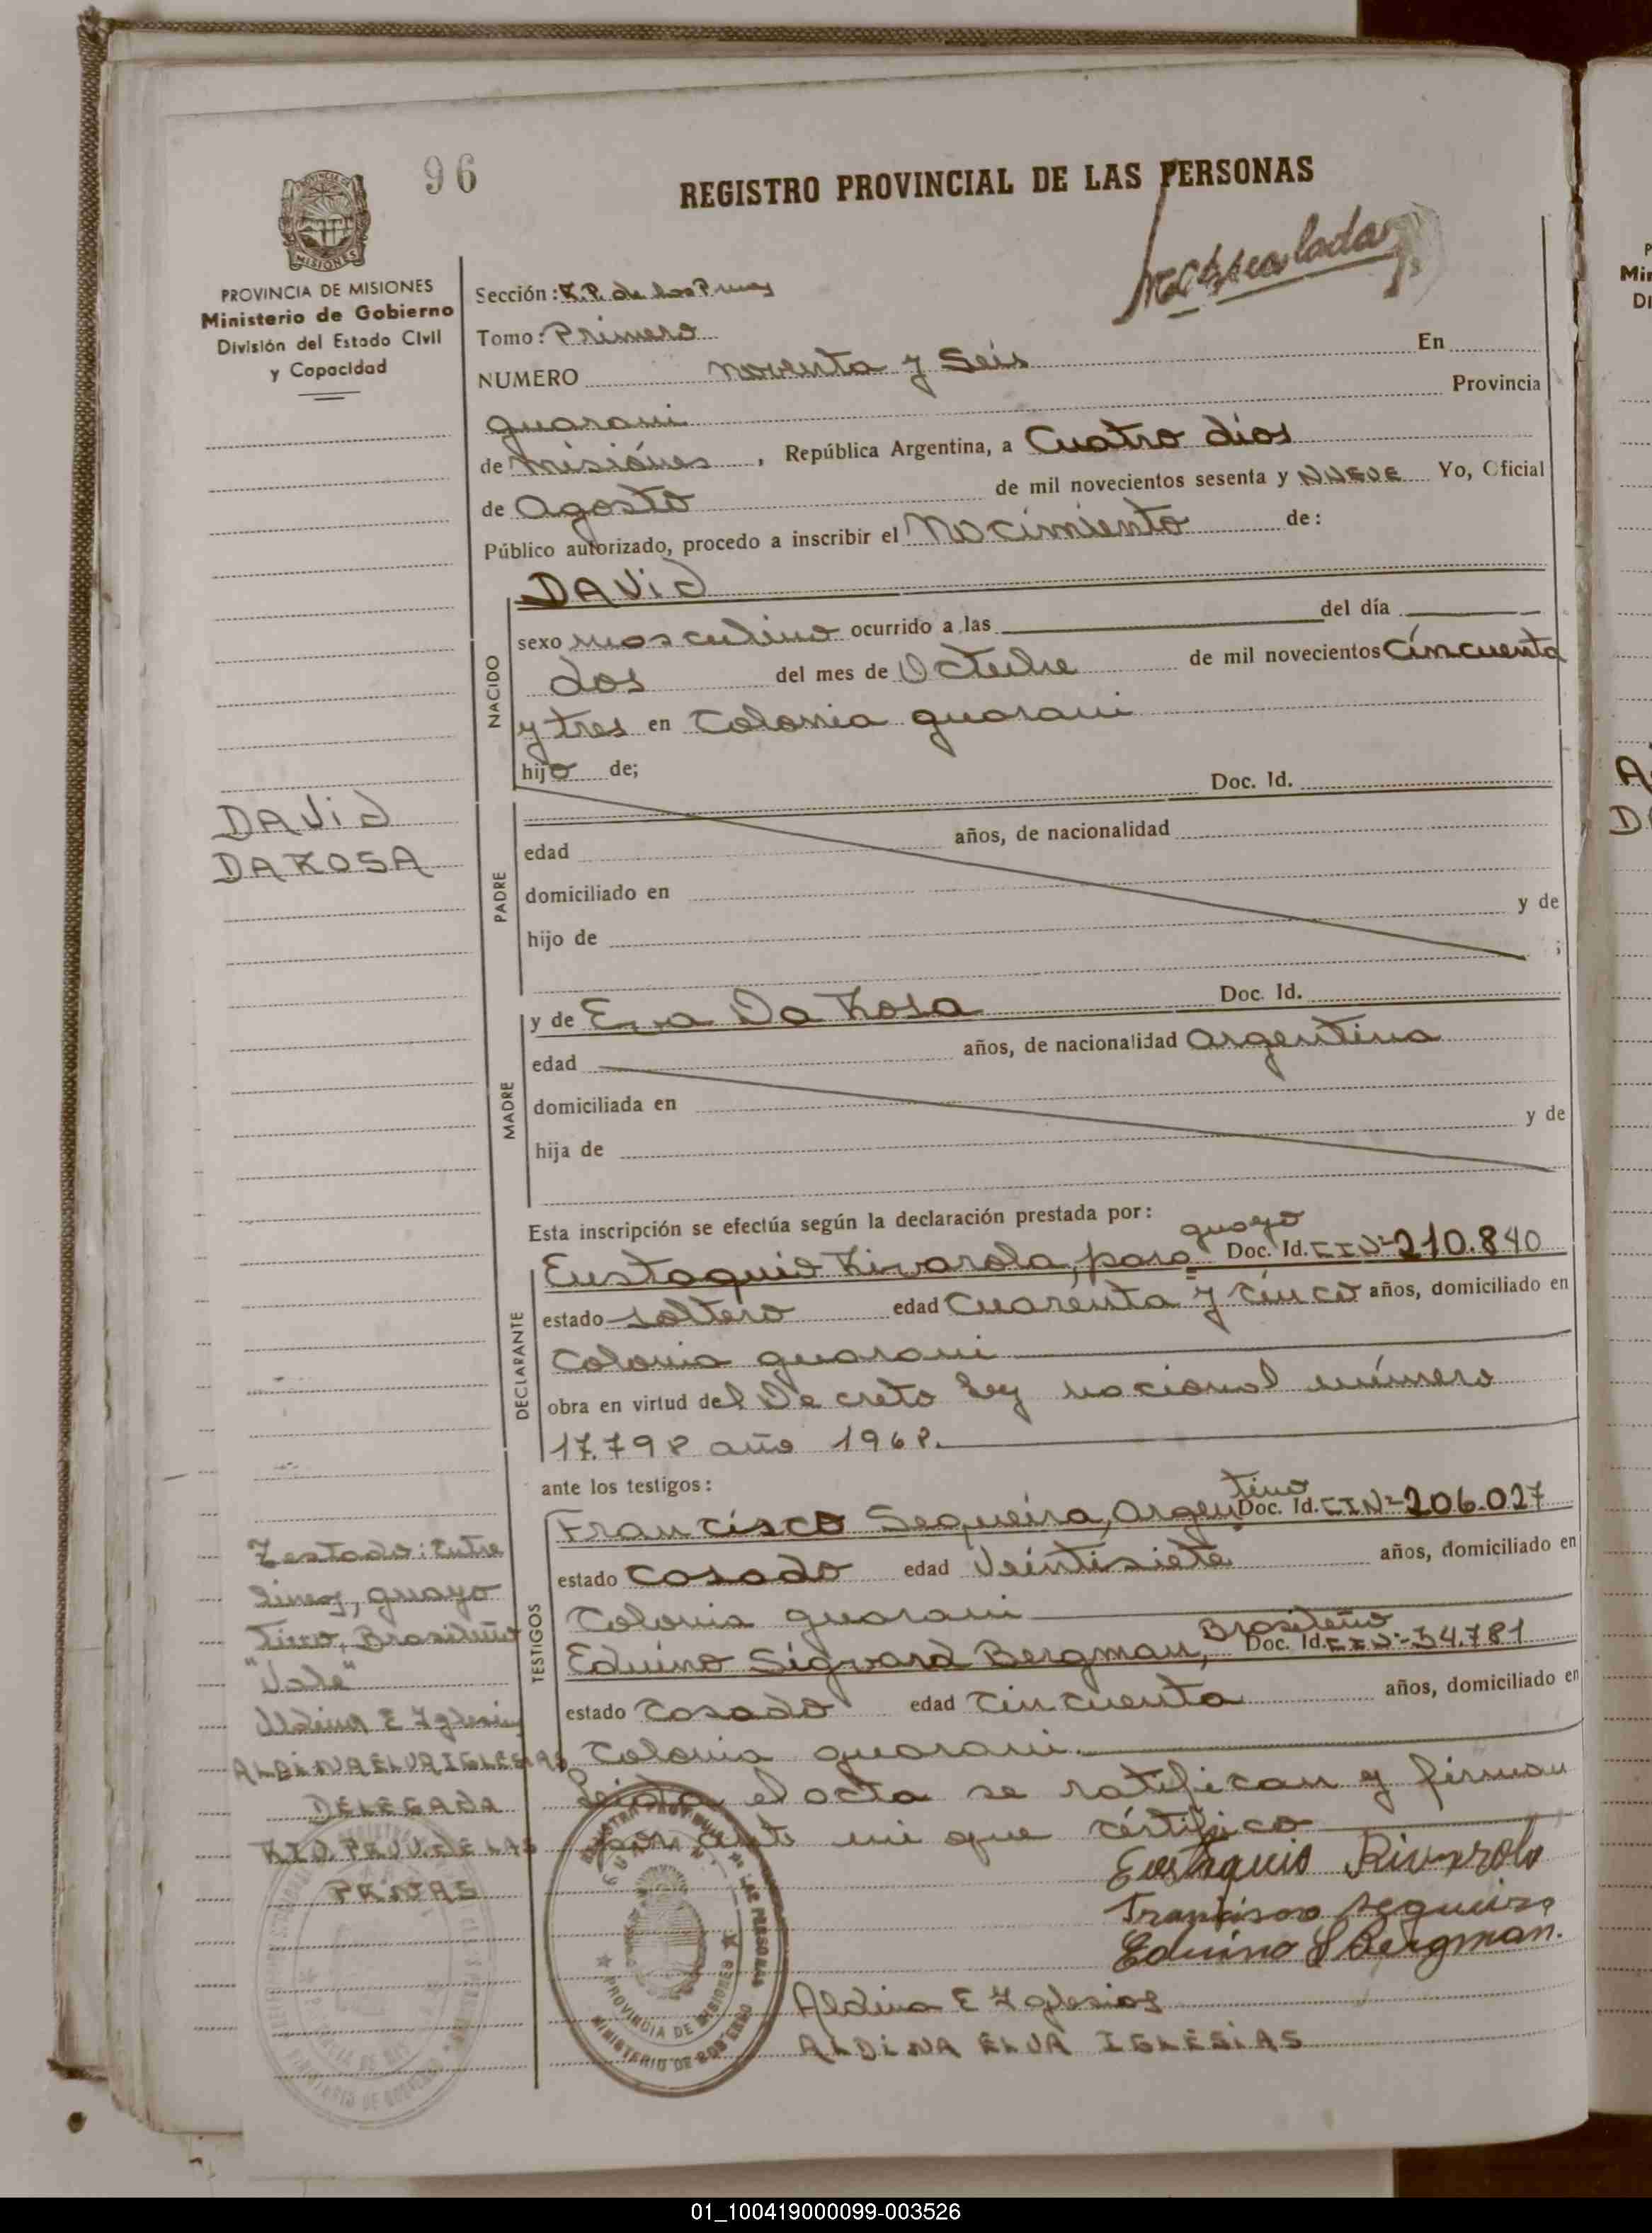 96
REGISTRO PROVINCIAL DE LAS PERSONAS
MISIONES
PROVINCIA DE MISIONES
Ministerio de Gobierno
División del Estado Civil
y Capacidad
Sección: R.P. de las P
Tomo: Primero
NUMERO noventa y Seis En
guarani Provincia
de misiónes, República Argentina, a Cuatro dias
de Agosto de mil novecientos sesenta y NUEVE Yo, Oficial
Público autorizado, procedo a inscribir el Nacimiento de:
DAViD
NACIDO
sexo masculino ocurrido a las del día
dos del mes de Octubre de mil novecientos Cincuenta
y tres en Colonia guarani
hijo de;
DAViD
DA ROSA
PADRE
Doc. Id.
edad años, de nacionalidad
domiciliado en
hijo de y de
;
MADRE
y de Eva Da Rosa Doc. Id.
edad años, de nacionalidad Argentina
domiciliada en
hija de y de
Esta inscripción se efectúa según la declaración prestada por:
DECLARANTE
guayo
Eustaquio Rivarola, para Doc. Id. CIN- 210.840
estado soltero edad Cuarenta y cinco años, domiciliado en
Colonia guarani
obra en virtud del Decreto Ley nacional número
17.798 año 1968.
ante los testigos:
TESTIGOS
tino
Francisco Sequeira, Argen Doc. Id. CIN- 206.027
estado Casado edad Veintisiete años, domiciliado en
Colonia guarani
Brasileño
Eduino Sigvard Bergman, Doc. Id. CIN- 34.781
estado Casado edad Cincuenta años, domiciliado en
Colonia guarani.
Leida el acta se ratifican y firman
por ante mi que certifico
Eustaquio Rivarola
Francisco Sequeira
Eduino S Bergman.
Aldina E Iglesias
ALDiNA ELVA IGLESiAS
Testado: Entre
lineas, guayo
tino, Brasileño
"Vale"
Aldina E Iglesias
ALDiNA ELVA IGLESIAS
DELEGADA
RIO. PROV. DE LAS
PRNAS
PROVINCIA DE MISIONES
MINISTERIO DE GOBIERNO
01_100419000099-003526